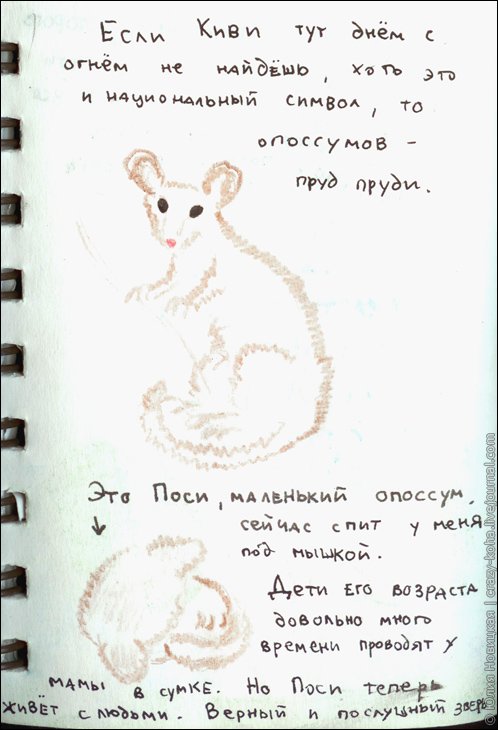 Если Киви тут днём с
огнём не найдёшь, хоть это
и национальный символ, то
опоссумов -
пруд пруди.
Это Поси, маленький опоссум,
сейчас спит у меня
под мышкой.
Дети его возраста
довольно много
времени проводят у
мамы в сумке. Но Поси теперь
живёт с людьми. Верный и послушный зверь
© Юлия Новицкая | crazy-koha.livejournal.com